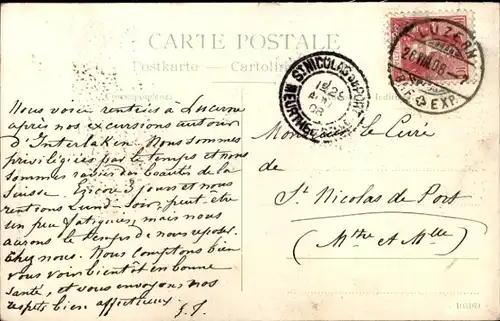 CARTE POSTALE
Postkarte - Cartolina
LUZERN
26.VIII.08
BRF. EXP.
ST NICOLAS DU PORT
MEURTHE
Nous voici rentrées à Lucerne
après nos excursions autour
d'Interlaken. Nous sommes
privilégiées par le temps et nous
sommes ravies des beautés de la
Suisse. Encore 3 jours et nous
rentrons Lundi-Soir, peut-être
un peu fatiguées, mais nous
aurons le temps de nous reposer
chez nous. Nous comptons bien
vous voir bientôt en bonne
santé, et vous envoyons nos
respects bien affectueux.
Monsieur le Curé
de
St Nicolas de Port
(Mthe et Mlle)